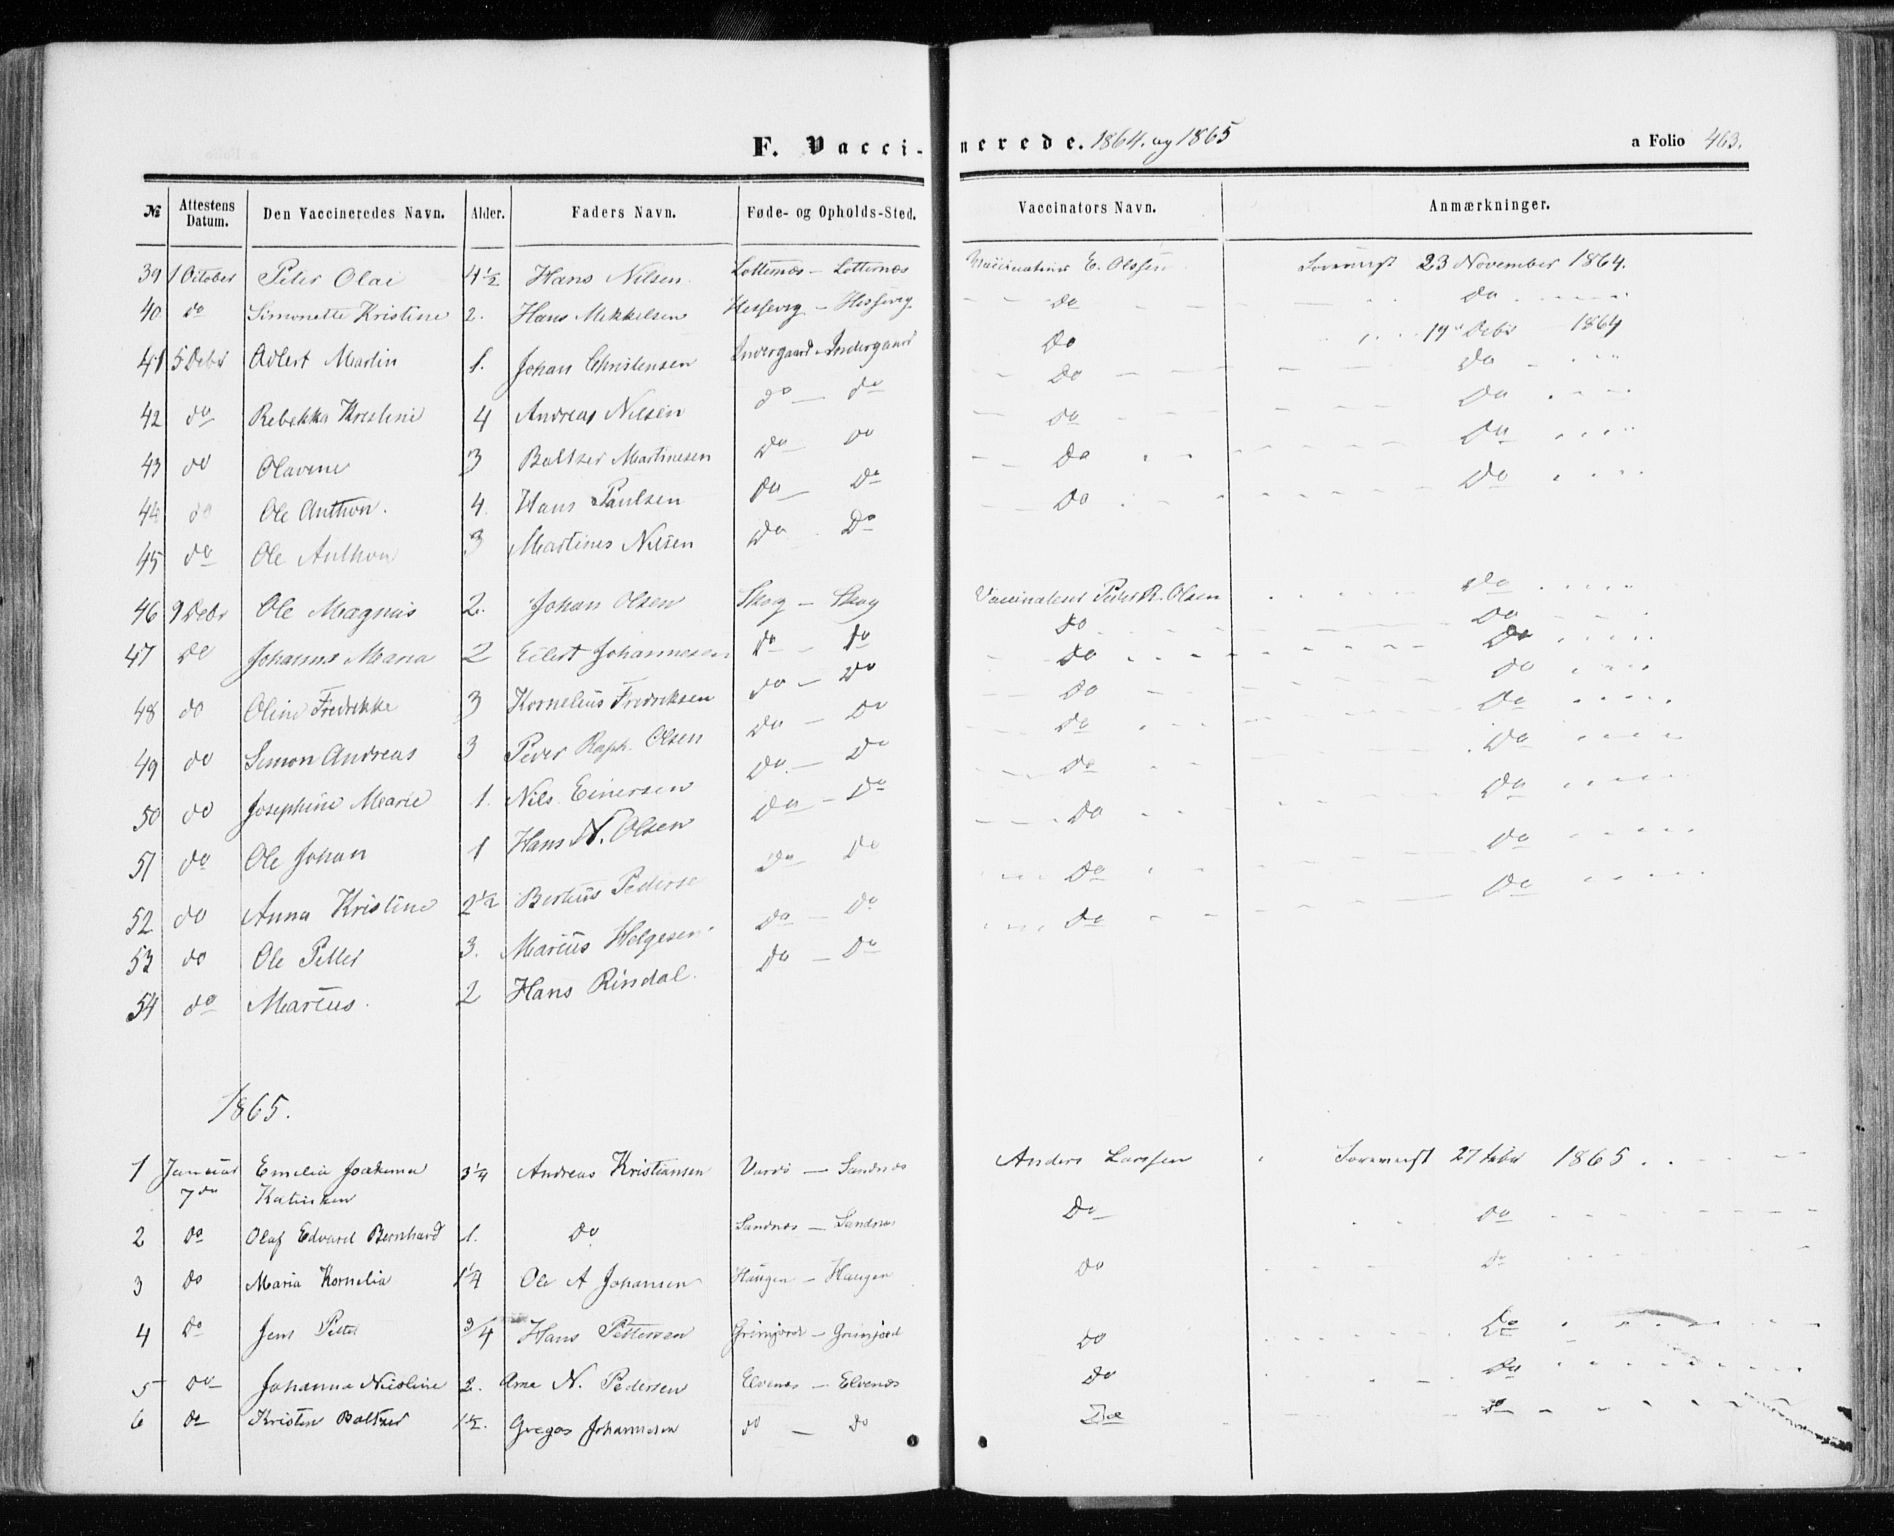 F. Vaccinerede. 1864. og 1865 a Folio 463.
№ Attestens Datum. Den Vaccineredes Navn. Alder. Faders Navn. Føde- og Opholds-Sted. Vaccinators Navn. Anmærkninger.
39 1 October Peter Olai 4½ Hans Nilsen. Lotternæs - Lotternæs Vaccinateur E. Olssen 23 November 1864.
40 do Simonette Kristine 2. Hans Mikkelsen Hessevig - Hessevig Do Do
41 5 Debr Adlert Martin 1. Johan Christensen Indergaard - Indergaard Do 19 Debr 1864
42 do Rebekka Kristine 4 Andreas Nilsen do - do Do Do
43 do Olavene 3 Baltzer Martinesen Do - Do do Do
44 do Ole Anthon. 4. Hans Paulsen Do - Do Do Do
45 do Ole Anthon 3 Martines Nilsen Do - Do Do Do
46 9 Debr Ole Magnus 2. Johan Olsen Skog - Skog Vaccinateur Peder R. Olsen Do
47 do Johanne Maria 2 Eilert Johannesen Do - Do Do Do
48 do Oline Fredrikke 3 Kornelius Fredriksen Do - Do Do Do
49 do Simon Andreas 3 Peder Raph. Olsen Do - Do Do Do
50 do Josephine Marie 1. Nils Einersen Do - Do Do Do
51 do Ole Johan 1 Hans N. Olsen Do - Do Do Do
52 do Anna Kristine 2½ Bertius Pederse Do - Do Do Do
53 do Ole Petter 3. Marius Helgesen Do - Do Do Do
54 do Marius. 2 Hans Rindal. Do - Do Do Do
1865.
1 Januar 7de Emelia Joakima 3¼ Andreas Kristiansen Vardö - Sandnæs Anders Larssen 27 Febr 1865
Katinka
2 Do Olaf Edvard Bernhard 1. Do Sandnæs - Sandnæs Do Do
3 Do Maria Kornelia 1¼ Ole A Johansen Haugen - Haugen Do Do
4 Do Jens Peter 3/4 Hans Pettersen Do Do
5 Do Johanna Nicoline 2. Arne N. Pedersen Elvenæs - Elvenæs Do Do
6 Do Kristen Baltzer 1½. Gregos Johannesen do - do Do Do